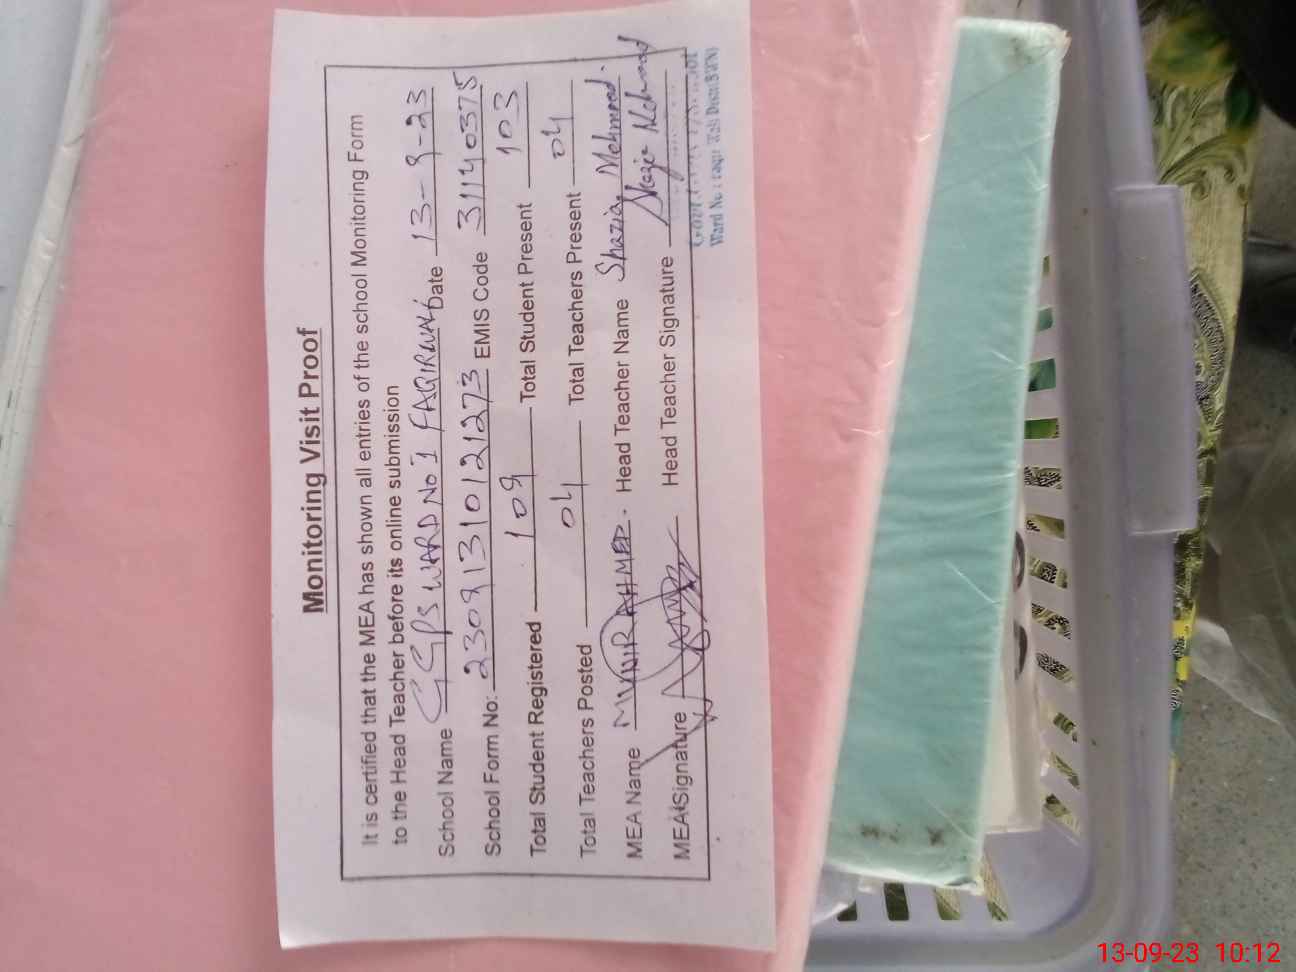 Monitoring Visit Proof
It is certified that the MEA has shown all entries of the school Monitoring Form
to the Head Teacher before its online submission
School Name GGPS WARD No I FAQIRWALI Date 13-9-23
School Form No: 23091310121273 EMIS Code 31140375
Total Student Registered 109 Total Student Present 103
Total Teachers Posted 04 Total Teachers Present 04
MEA Name MUNIR AHMED. Head Teacher Name Shazia Mehmood.
MEA Signature Head Teacher Signature Shazia Mehmood
Ward No 1 Faqir Wali Distt:(BWN)
13-09-23 10:12